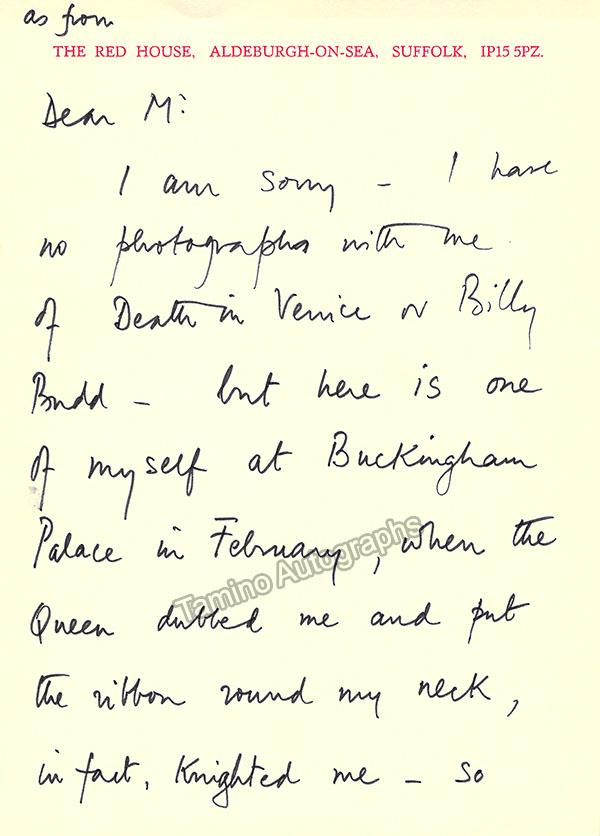 as from
THE RED HOUSE, ALDEBURGH-ON-SEA, SUFFOLK, IP15 5PZ.
Dear M:
I am sorry – I have
no photographs with me
of Death in Venice or Billy
Budd – but here is one
of myself at Buckingham
Palace in February, when the
Tamino Autographs
Queen dubbed me and put
the ribbon round my neck,
in fact, Knighted me – so